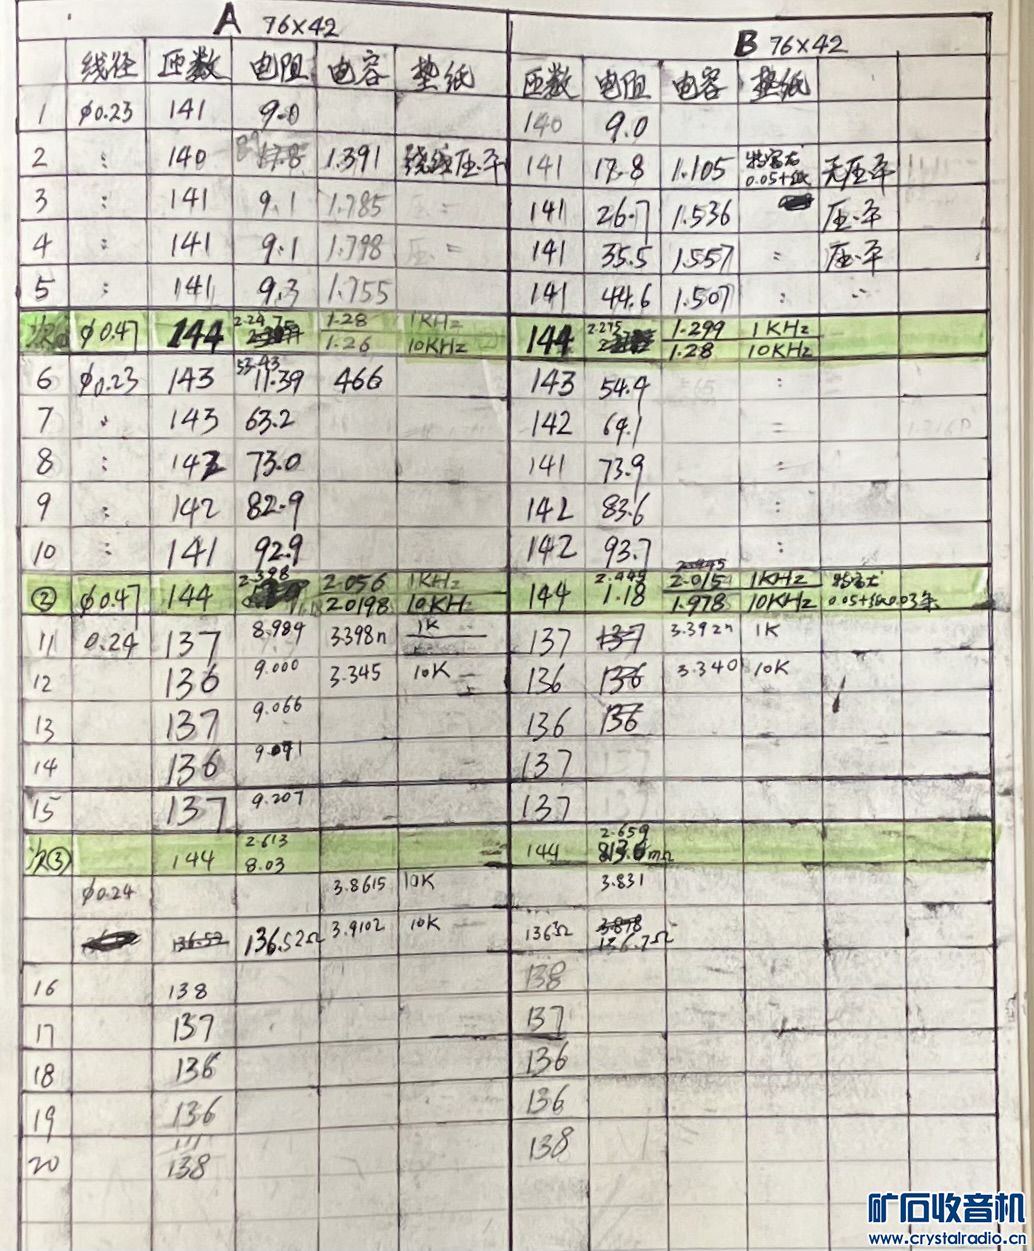 A 76×42 B 76×42
线径 匝数 电阻 电容 垫纸 匝数 电阻 电容 垫纸
1 φ0.23 141 9.0 140 9.0
2 : 140 17.8 1.391 绕组压平 141 17.8 1.105 0.05+纸 无压平
3 : 141 9.1 1.785 压 " 141 26.7 1.536 压平
4 : 141 9.1 1.798 压 " 141 35.5 1.557 : 压平
5 : 141 9.3 1.755 141 44.6 1.507 " "
φ0.47 144 2.2475 1.28 1KHz 144 2.275 1.299 1KHz
1.26 10KHz 1.28 10KHz
53.43
6 φ0.23 143 11.39 466 143 54.4 :
7 " 143 63.2 142 64.1 "
8 : 142 73.0 141 73.9 "
9 : 142 82.9 142 83.6 :
10 : 141 92.9 142 93.7 :
② φ0.47 144 2.398 2.056 1KHz 144 2.449 2.015 1KHz
2.0198 10KH 1.18 1.978 10KHz 0.05+纸0.03
11 0.24 137 8.984 3.398n 1K 137 137 3.392n 1K
12 136 9.000 3.345 10K 136 136 3.340 10K
13 137 9.066 136 136
14 136 9.091 137
15 137 9.207 137
次③ 144 2.613 144 2.659
8.03 mΩ
φ0.24 3.8615 10K 3.831
136.52 136.52Ω 3.9102 10K 136Ω 3.878
136.7Ω
16 138 138
17 137 137
18 136 136
19 136 136
20 138 138
矿石收音机
www.crystalradio.cn